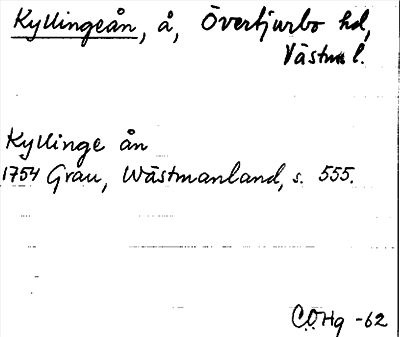 Kyllingeån, å, Övertjurbo hd,
Västm l.
Kyllinge ån
1754 Grau, Wästmanland, s. 555.
C.O.Hq -62